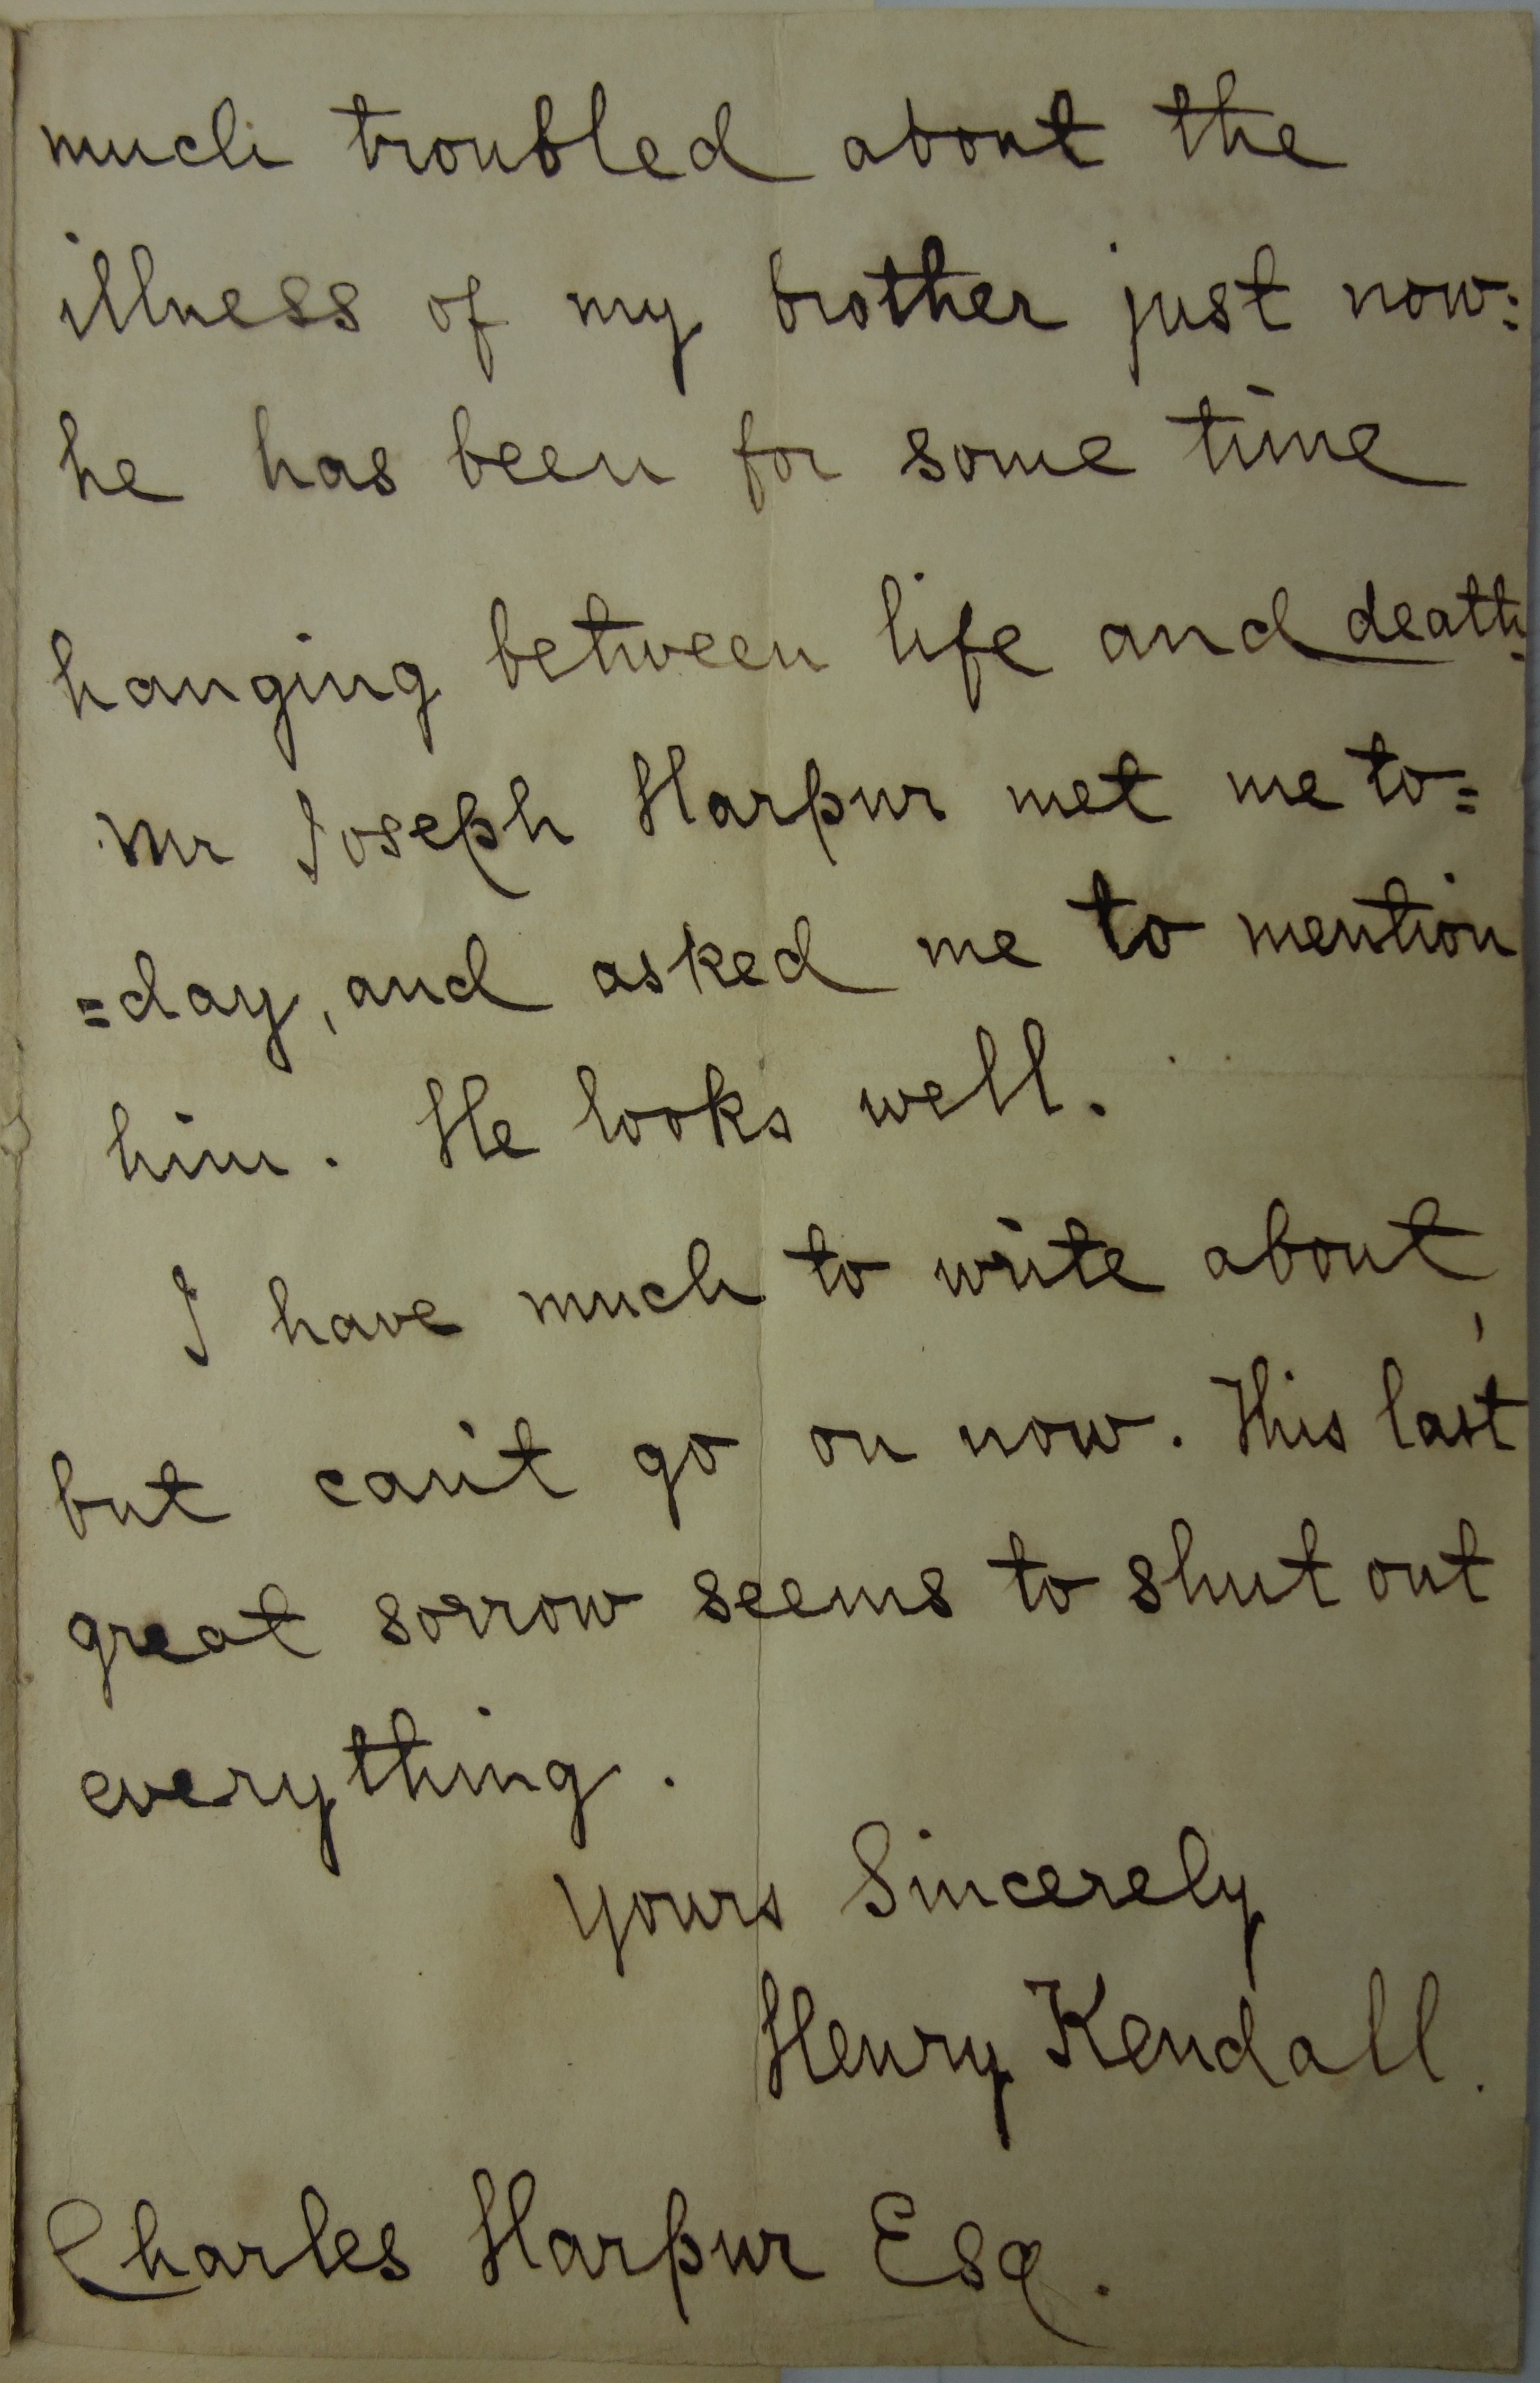 much troubled about the
illness of my brother just now:
he has been for some time
hanging between life and death.
Mr Joseph Harpur met me to=
=day, and asked me to mention
him. He looks well.
I have much to write about,
but can't go on now. This last
great sorrow seems to shut out
everything.
Yours Sincerely
Henry Kendall.
Charles Harpur Esq.